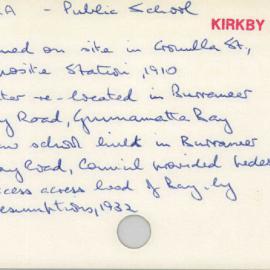 LA - Public School
KIRKBY
ned on site in Cronulla St.,
posite Station, 1910
ter re-located in Burraneer
y Road, Gunnamatta Bay
w school built in Burraneer
ay Road, Council provided pedes
ccess across head of Bay by
esumptions, 1932